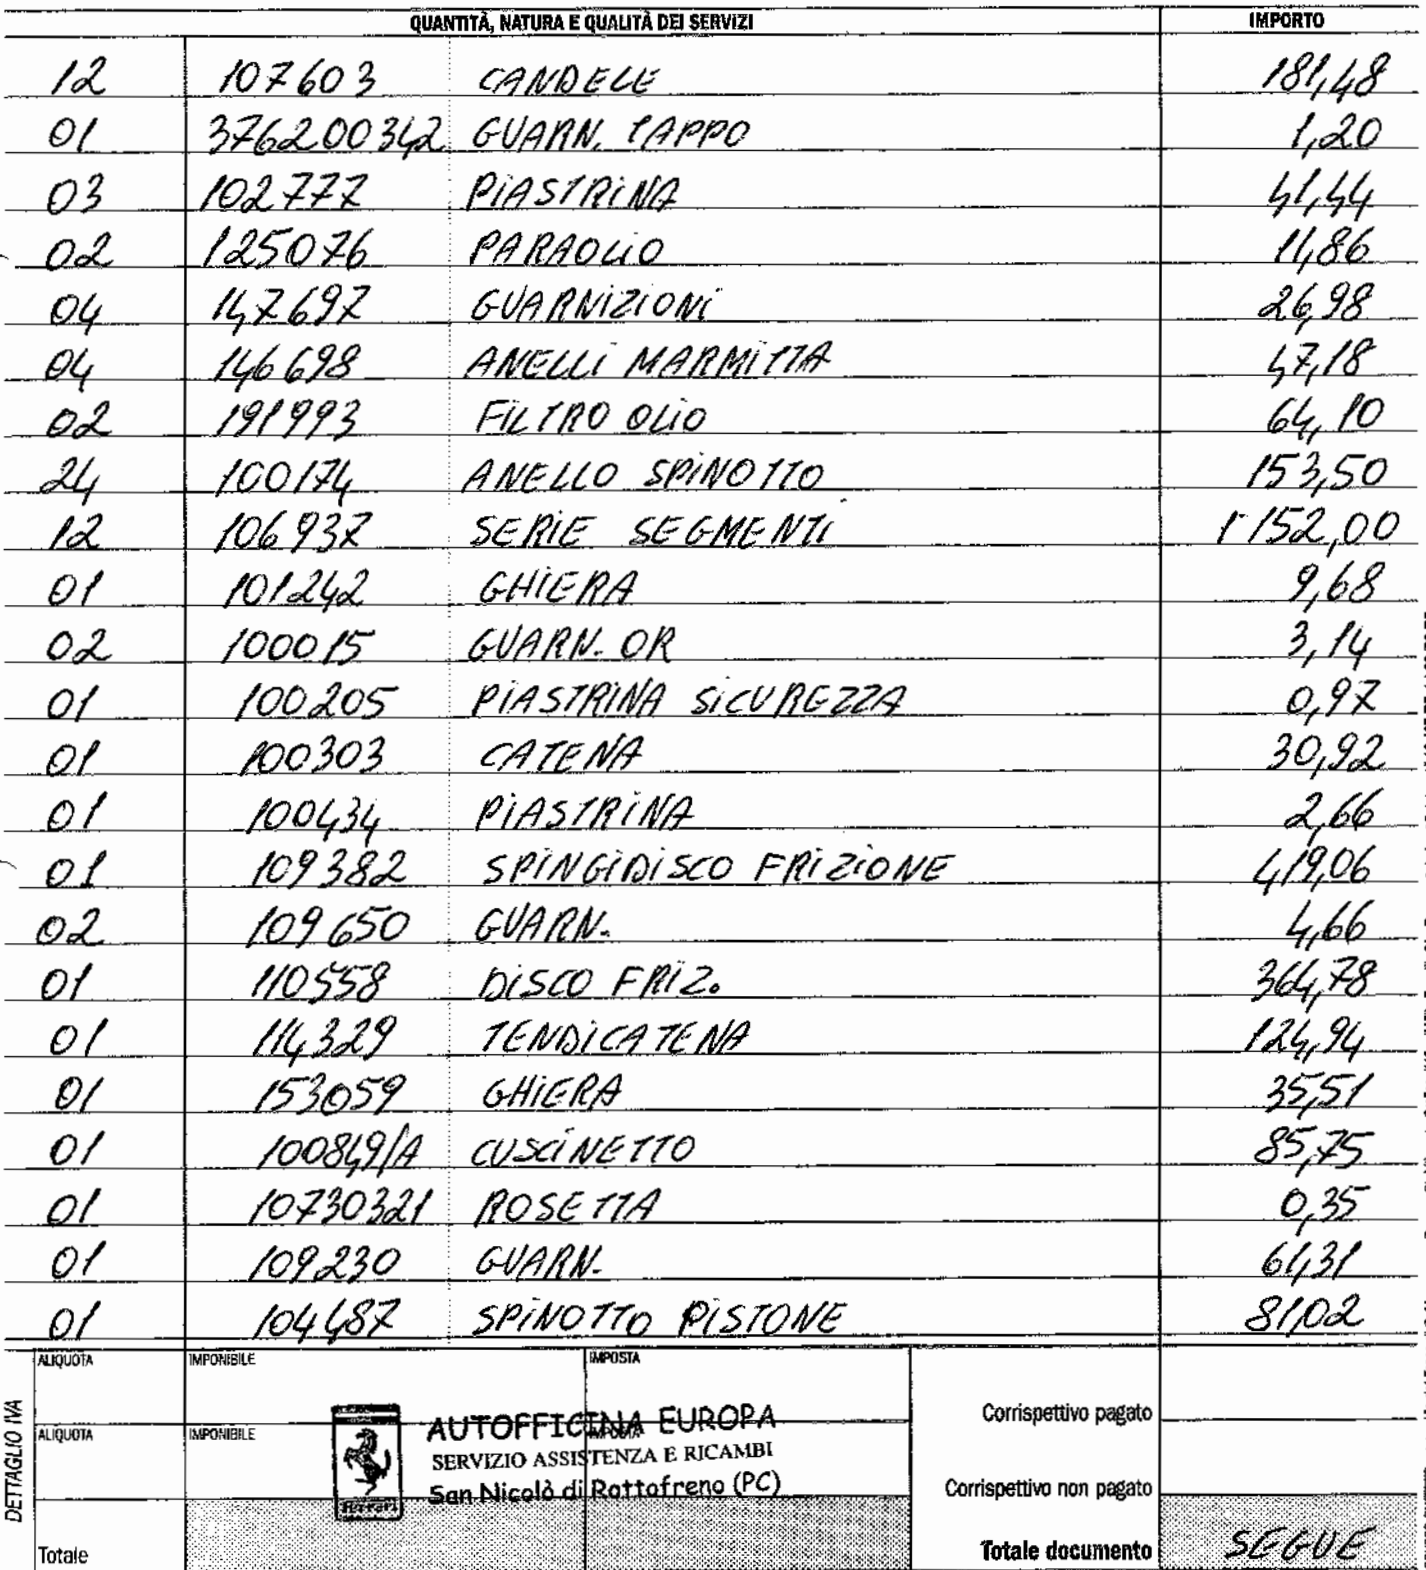 QUANTITÀ, NATURA E QUALITÀ DEI SERVIZI IMPORTO
12 107603 CANDELE 181,48
01 376200342 GUARN. TAPPO 1,20
03 102777 PIASTRINA 41,44
02 125076 PARAOLIO 11,86
04 147697 GUARNIZIONI 26,98
04 146698 ANELLI MARMITTA 47,18
02 191993 FILTRO OLIO 64,10
24 100174 ANELLO SPINOTTO 153,50
12 106937 SERIE SEGMENTI 1152,00
01 101242 GHIERA 9,68
02 100015 GUARN. OR 3,14
01 100205 PIASTRINA SICUREZZA 0,97
01 100303 CATENA 30,92
01 100434 PIASTRINA 2,66
01 109382 SPINGIDISCO FRIZIONE 419,06
02 109650 GUARN. 4,66
01 110558 DISCO FRIZ. 364,78
01 114329 TENDICATENA 124,94
01 153059 GHIERA 35,51
01 100849/A CUSCINETTO 85,75
01 10730321 ROSETTA 0,35
01 109230 GUARN. 61,31
01 104487 SPINOTTO PISTONE 81,02
DETTAGLIO IVA
ALIQUOTA IMPONIBILE IMPOSTA
Corrispettivo pagato
ALIQUOTA IMPONIBILE IMPOSTA
AUTOFFICINA EUROPA
SERVIZIO ASSISTENZA E RICAMBI
San Nicolò di Rottofreno (PC)
Ferrari
Corrispettivo non pagato
Totale Totale documento SEGUE